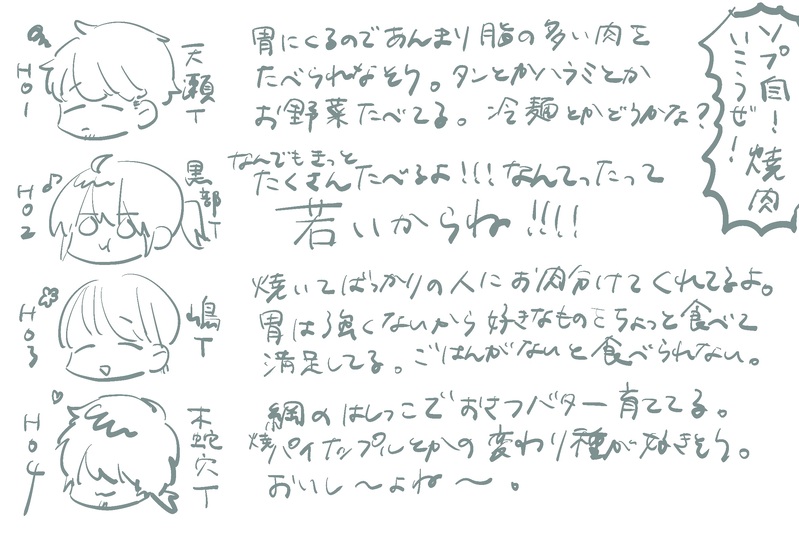 ソプ自！焼肉
いこうぜ！
HO1
天瀬T
胃にくるのであんまり脂の多い肉を
たべられなそう。タンとかハラミとか
お野菜たべてる。冷麺とかどうかな？
HO2
黒部T
なんでもきっと
たくさんたべるよ！！！なんてったって
若いからね！！！！
HO3
嶋T
焼いてばっかりの人にお肉分けてくれてるよ。
胃は強くないから好きなものをちょっと食べて
満足してる。ごはんがないと食べられない。
HO4
木蛇穴T
網のはしっこでおさつバター育ててる。
焼パイナップルとかの変わり種が好きそう。
おいし〜よね〜。